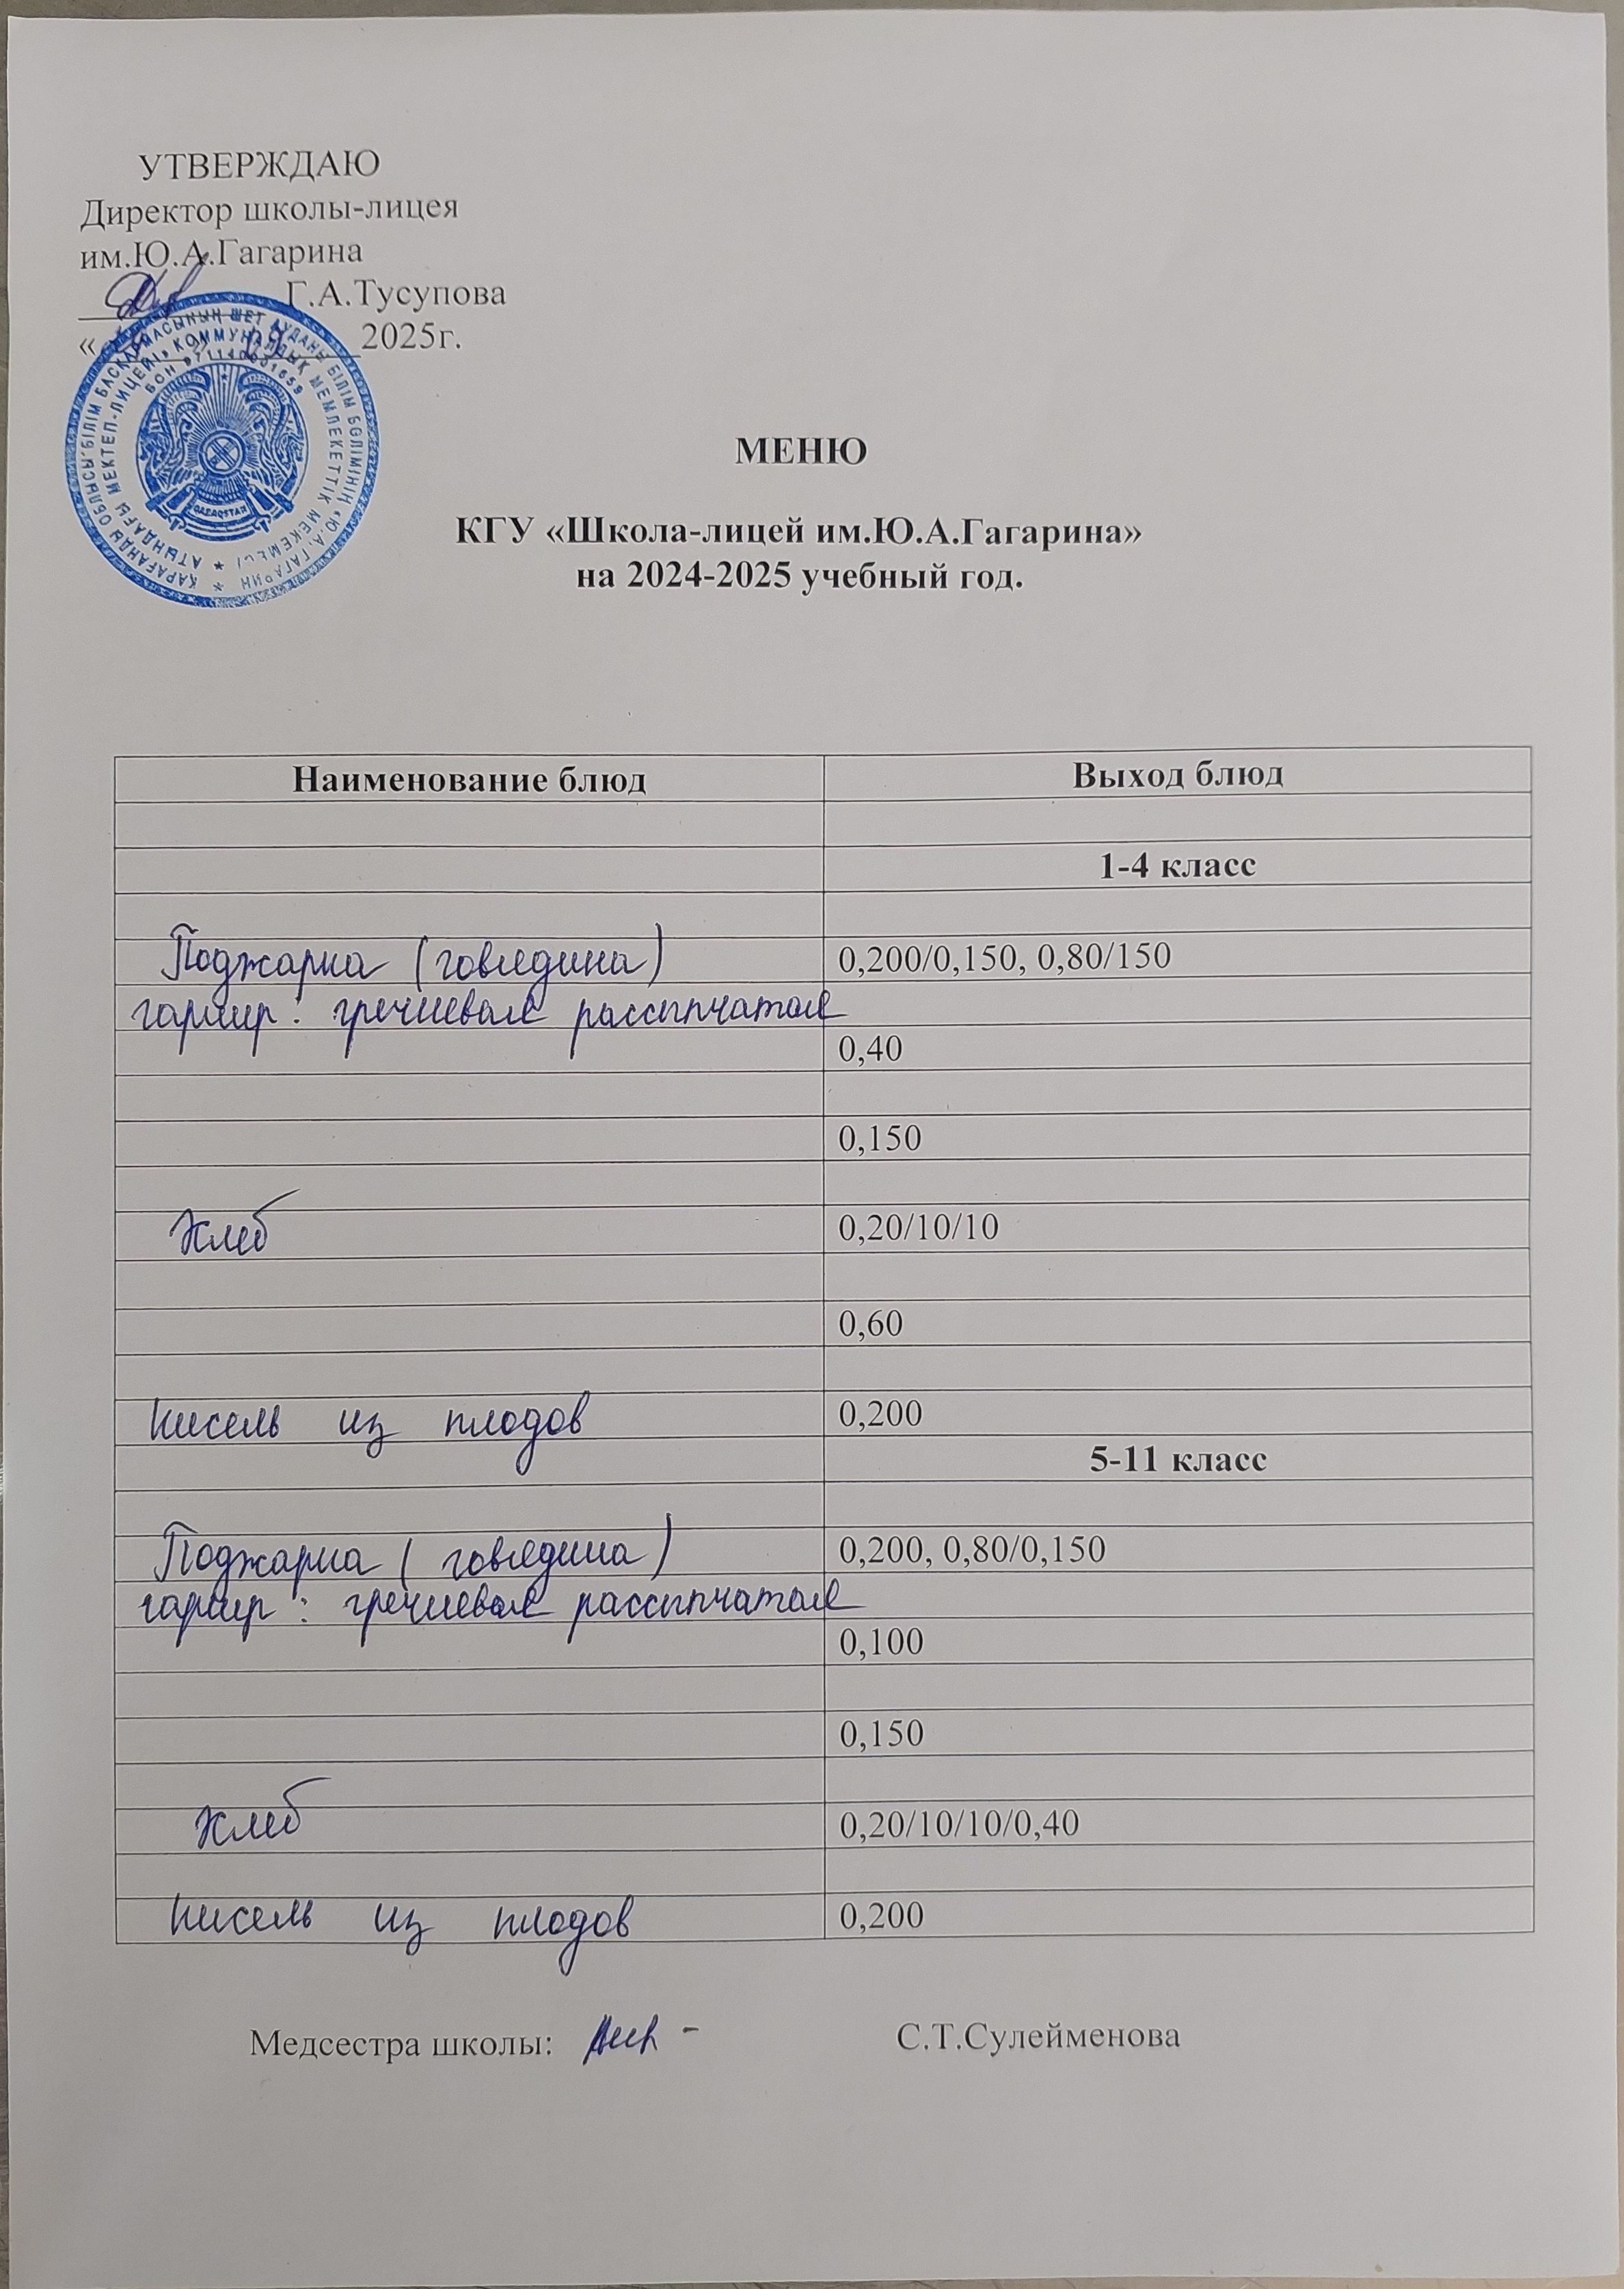 УТВЕРЖДАЮ
Директор школы-лицея
им.Ю.А.Гагарина
Г.А.Тусупова
« » 09 2025г.
ҚАРАҒАНДЫ ОБЛЫСЫ БІЛІМ БАСҚАРМАСЫНЫҢ ШЕТ АУДАНЫ БІЛІМ БӨЛІМІНІҢ «Ю.А. ГАГАРИН
АТЫНДАҒЫ МЕКТЕП-ЛИЦЕЙІ» КОММУНАЛДЫҚ МЕМЛЕКЕТТІК МЕКЕМЕСІ
БСН
QAZAQSTAN
МЕНЮ
КГУ «Школа-лицей им.Ю.А.Гагарина»
на 2024-2025 учебный год.
Наименование блюд Выход блюд
1-4 класс
Поджарка (говядина) 0,200/0,150, 0,80/150
гарнир: гречневая рассыпчатая
0,40
0,150
Хлеб 0,20/10/10
0,60
Кисель из плодов 0,200
5-11 класс
Поджарка (говядина) 0,200, 0,80/0,150
гарнир: гречневая рассыпчатая
0,100
0,150
Хлеб 0,20/10/10/0,40
Кисель из плодов 0,200
Медсестра школы: С.Т.Сулейменова